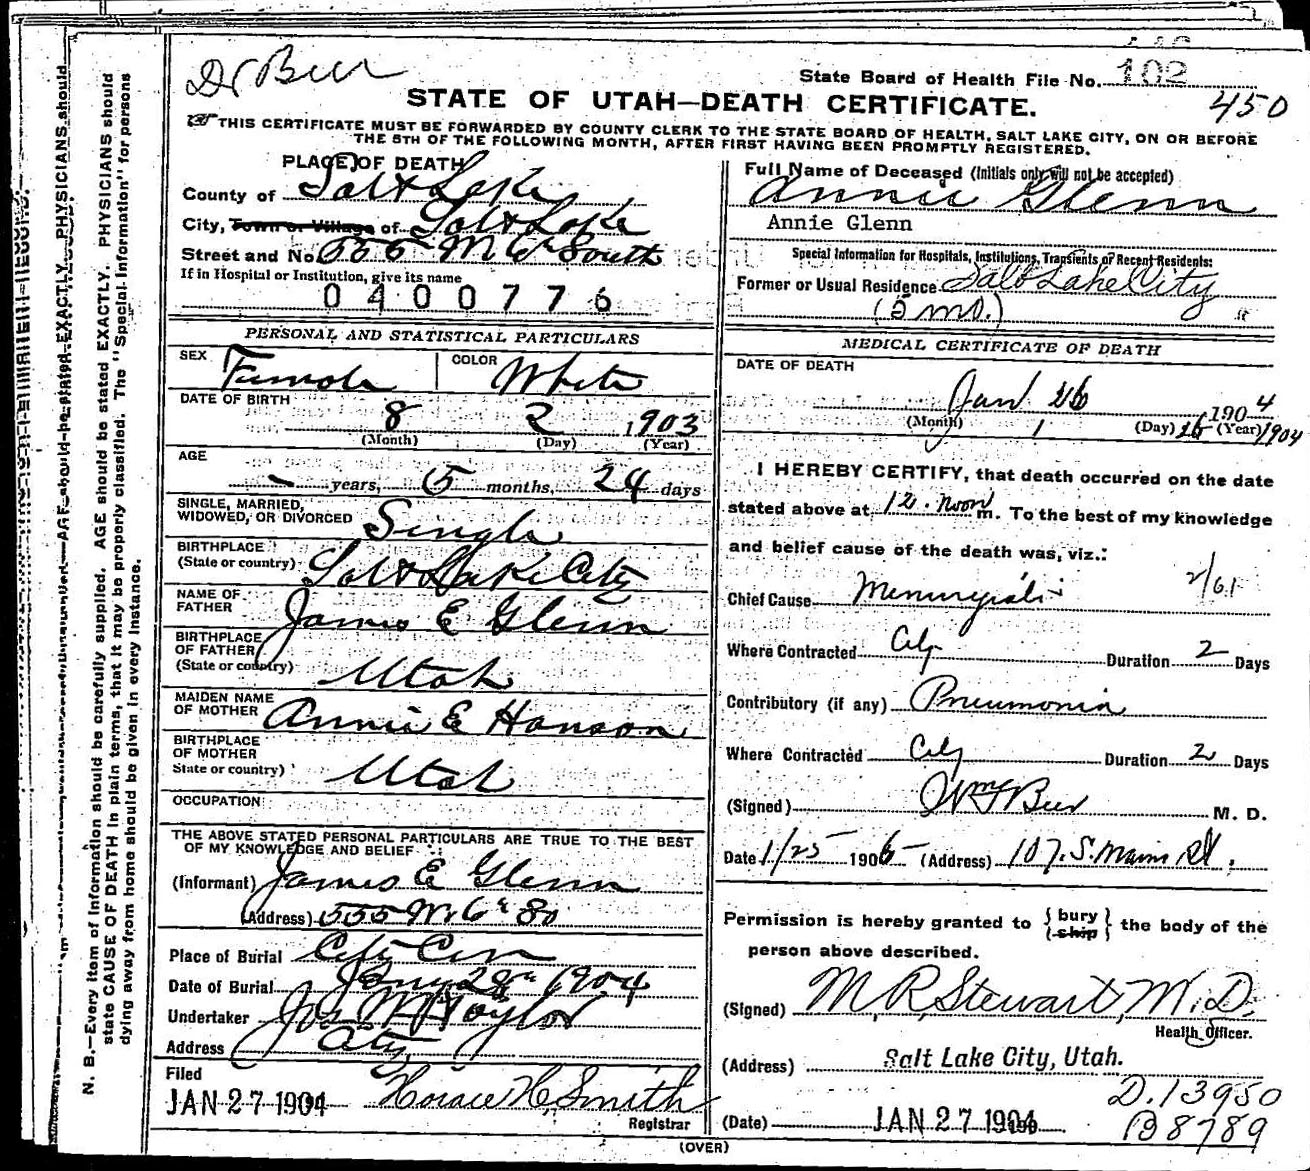 Dr Beer
State Board of Health File No. 102
450
STATE OF UTAH—DEATH CERTIFICATE.
THIS CERTIFICATE MUST BE FORWARDED BY COUNTY CLERK TO THE STATE BOARD OF HEALTH, SALT LAKE CITY, ON OR BEFORE
THE 5TH OF THE FOLLOWING MONTH, AFTER FIRST HAVING BEEN PROMPTLY REGISTERED.
PLACE OF DEATH
County of Salt Lake
City, Town or Village of Salt Lake
Street and No. 555 W 6th South
If in Hospital or Institution, give its name
0400776
Full Name of Deceased (Initials only will not be accepted)
Annie Glenn
Annie Glenn
Special Information for Hospitals, Institutions, Transients or Recent Residents:
Former or Usual Residence Salt Lake City
(5 mo.)
PERSONAL AND STATISTICAL PARTICULARS
SEX Female COLOR White
DATE OF BIRTH
8 2 1903
(Month) (Day) (Year)
AGE
— years, 5 months, 24 days
SINGLE, MARRIED,
WIDOWED, OR DIVORCED Single
BIRTHPLACE
(State or country) Salt Lake City
NAME OF
FATHER James E Glenn
BIRTHPLACE
OF FATHER
(State or country) Utah
MAIDEN NAME
OF MOTHER Annie E Hanson
BIRTHPLACE
OF MOTHER
State or country) Utah
OCCUPATION
THE ABOVE STATED PERSONAL PARTICULARS ARE TRUE TO THE BEST
OF MY KNOWLEDGE AND BELIEF
(Informant) James E Glenn
(Address) 555 W. 6th So
Place of Burial City Cem
Date of Burial Jany 28th 1904
Undertaker Jos Wm Taylor
Address City
Filed
JAN 27 1904 Horace H. Smith
Registrar
MEDICAL CERTIFICATE OF DEATH
DATE OF DEATH
Jan 26 1904
(Month) 1 (Day) 26 (Year) 1904
I HEREBY CERTIFY, that death occurred on the date
stated above at 12. noon m. To the best of my knowledge
and belief cause of the death was, viz.:
2/61
Chief Cause Meningitis
Where Contracted City Duration 2 Days
Contributory (if any) Pneumonia
Where Contracted City Duration 2 Days
(Signed) Wm F Beer M. D.
Date 1/25 190 (Address) 107. S. Main St.
Permission is hereby granted to { bury ship } the body of the
person above described.
(Signed) M. R. Stewart, M. D.
Health Officer.
(Address) Salt Lake City, Utah.
D. 13950
(Date) JAN 27 1904
B 8789
(OVER)
N. B.—Every item of information should be carefully supplied. AGE should be stated EXACTLY. PHYSICIANS should
state CAUSE OF DEATH in plain terms, that it may be properly classified. The "Special Information" for persons
dying away from home should be given in every instance.